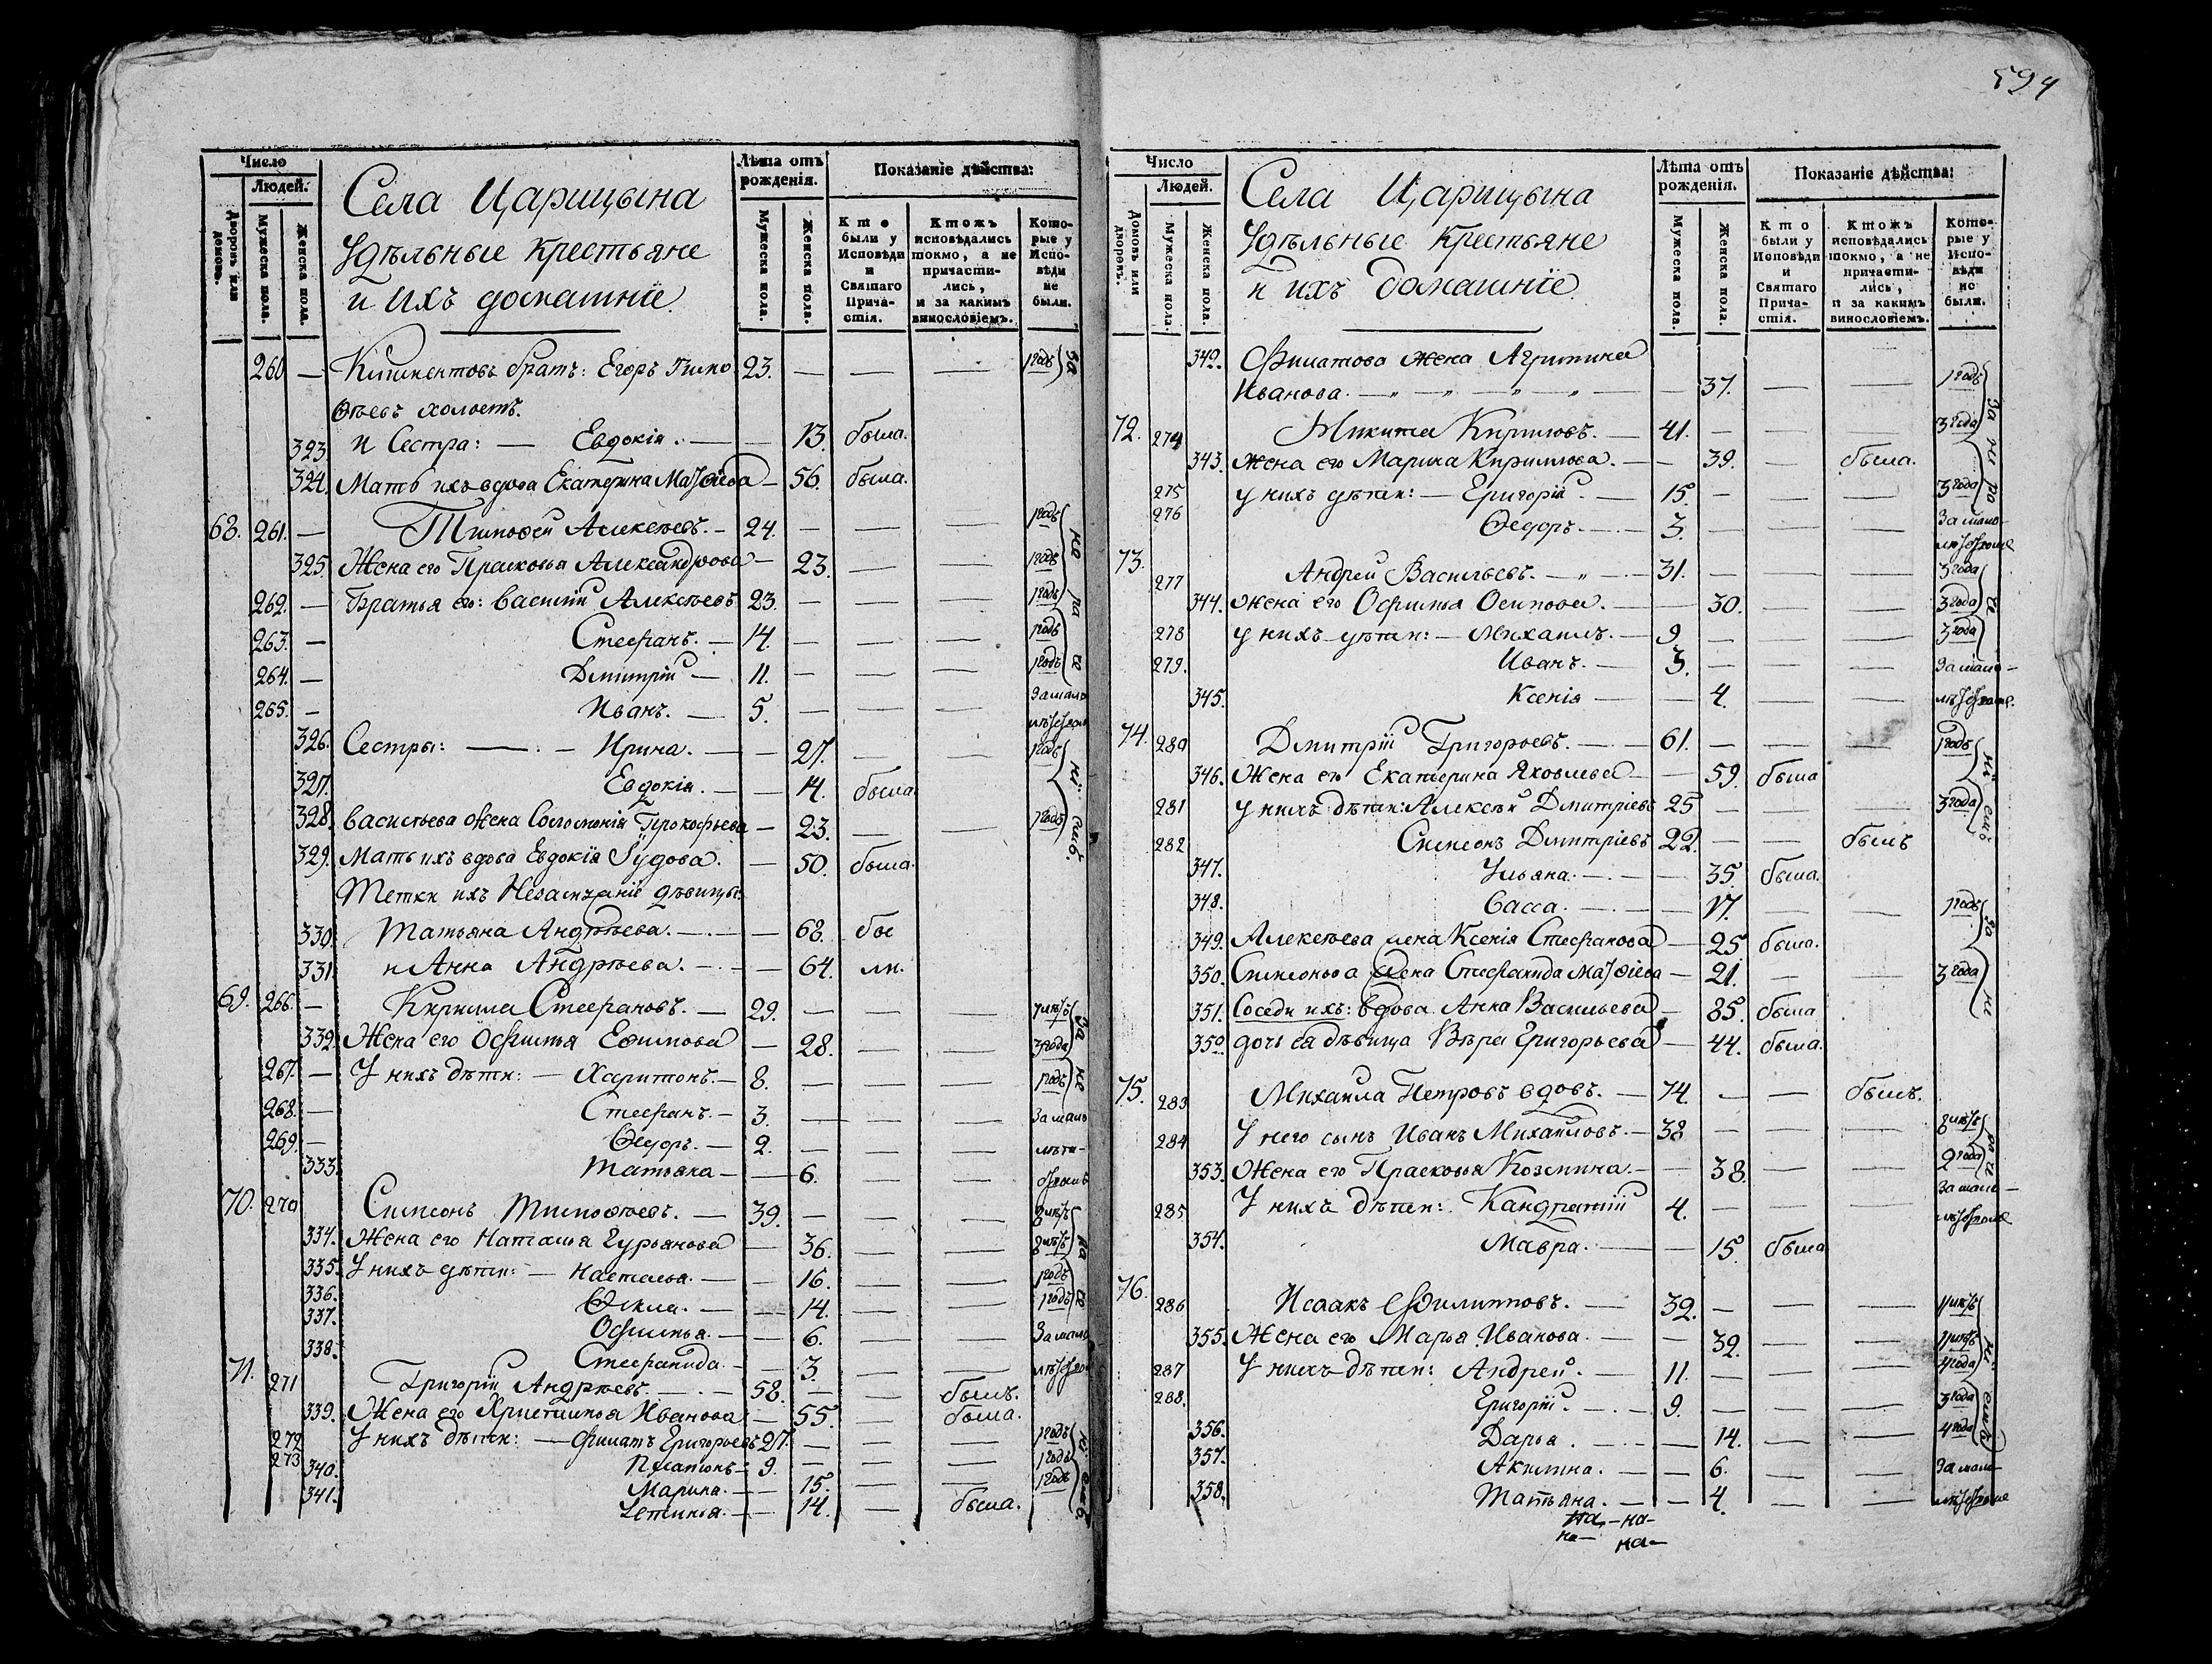 594
Число
Людей.
Дворовъ или домовъ.
Мужеска пола.
Женска пола.
Села Царицына
Удѣльные крестьяне
и ихъ домашніе
Лѣта отъ рожденія.
Мужеска пола.
Женска пола.
Показаніе дѣйства:
Кто были у Исповѣди и Святаго Причастія.
Ктожъ исповѣдались токмо, а не причастились, и за какимъ винословіемъ.
Которые у Исповѣди не были.
260 — братъ: Егоръ Тимо 23. — — — 1 годъ
ѳеевъ холостъ.
323 и Сестра: — Евдокія. — — 13. была.
324. Мать ихъ вдова Екатерина Матѳіева — 56. была.
68. 261. — Тимоѳей Алексѣевъ. — 24. — — — 1 годъ
325. Жена его Прасковья Александрова — 23. — — 1 годъ
262. — Братья его: Василій Алексѣевъ 23. — — — 1 годъ
263. — Стефанъ. — 14. — — — 1 годъ
264. — Дмитрій — 11. — — — 1 годъ
265. — Иванъ. — 5. — — — За мало
лѣтствомъ
326. Сестры: — Ирина. — — 27. — — 1 годъ
327. Евдокія. — — 14. была
328. Васильева жена Соломонія Прокофьева — 23. — — 1 годъ
329. Мать ихъ вдова Евдокія Іудова. — 50. была.
Тетки ихъ дѣвицы:
330. Татьяна Андрѣева. — — 68. бы
331. и Анна Андрѣева. — — 64. ли.
69. 266. — Кирила Стефановъ. — 29. — — — 7 лѣтъ
332. Жена его Офимья Ефимова — 28. — — 3 года
267. — У нихъ дѣти: — Харитонъ. — 8. — — — 1 годъ
268. — Стефанъ. — 3. — — — За мало
269. — Ѳедоръ. — 2. — — — лѣтс-
333. Татьяна — — 6. — — твомъ
70. 270 Симеонъ Тимоѳеевъ. — 39. — — — 8 лѣтъ
334. Жена его Наталья Гурьянова — 36. — — 8 лѣтъ
335. У нихъ дѣти: — Настасья. — — 16. — — 1 годъ
336. Ѳекла. — — 14. — — 1 годъ
337. Офимья. — — 6. — — За мало
338. Стефанида. — — 3. — — лѣтство
71. 271 Григорій Андрѣевъ. — 58. — — былъ.
339. Жена его Христинья Иванова — 55. — была.
272 У нихъ дѣти: — Филатъ Григорьевъ 27. — — — 1 годъ
273 Платонъ — 9. — — — 1 годъ
340. Марина. — — 15. — — 1 годъ
341. Устинья. — — 14. — была.
Число
Людей.
Домовъ или дворовъ.
Мужеска пола.
Женска пола.
Села Царицына
Удѣльные крестьяне
и ихъ домашніе
Лѣта отъ рожденія.
Мужеска пола.
Женска пола.
Показаніе дѣйства:
Кто были у Исповѣди и Святаго Причастія.
Ктожъ исповѣдались токмо, а не причастились, и за какимъ винословіемъ.
Которые у Исповѣди не были.
342. Филатова жена Агрипина
Иванова. — — 37. — — 1 годъ
72. 274 Никита Кириловъ. — 41. — — — 3 года
343. Жена его Марина Кирилова. — — 39. — была.
275 у нихъ дѣти: — Григорій. — 15. — — — 3 года
276 Ѳедоръ. — 3. — — — За мало-
лѣтствомъ
73. 277 Андрей Васильевъ. — 31. — — — 3 года
344. Жена его Офимья Осипова. — 30. — — 3 года
278 у нихъ дѣти: — Михаилъ. — 9 — — — 3 года
279. Иванъ. — 3. — — — За мало-
345. Ксенія — — 4. — — лѣтствомъ.
74. 280 Дмитрій Григорьевъ. — 61. — — — 1 годъ
346. Жена его Екатерина Яковлева — 59. была
281 у нихъ дѣти: Алексѣй Дмитріевъ 25 — — — 3 года
282 Симеонъ Дмитріевъ 22. — — былъ
347. Ульяна. — — 35. была.
348. Васса. — — 17. — — 1 годъ
349. Алексѣева жена Ксенія Стефанова — 25. была.
350. Симеонова жена Стефанида Матѳіева — 21. — — 3 года
351. Соседи ихъ: вдова Анна Васильева — 85. была
352 дочь ея дѣвица Вѣра Григорьева — 44. была.
75. 283 Михаила Петровъ вдовъ. — 74. — — былъ.
284 У него сынъ Иванъ Михаиловъ. — 38 — — — 8 лѣтъ
353. Жена его Прасковья Козмина. — — 38. — — 2 года
285 У нихъ дѣти: Кандратій 4. — — — За мало-
лѣтствомъ
354. Мавра. — — 15 была
76. 286 Исаакъ Филипповъ. — 32. — — — 11 лѣтъ
355. Жена его Марья Иванова. — — 32. — — 11 лѣтъ
287 У нихъ дѣти: Андрей. — 11. — — — 4 года
288. Григорій. — 9. — — — 3 года
356. Дарья. — — 14. — — 4 года
357. Акилина. — — 6. — — За мало-
358. Татьяна. — — 4. — — лѣтствомъ
на — на —
на — на —